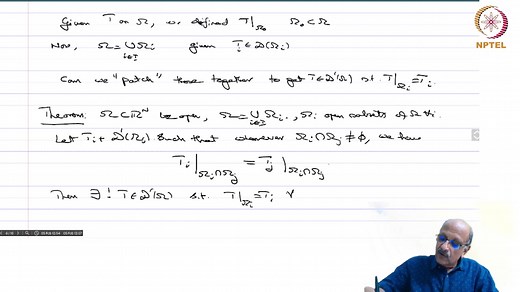 Given T on Ω, we defined T|_{Ω₀} Ω₀ ⊂ Ω
NPTEL
Now, Ω = ∪_{i∈I} Ω_i given T_i ∈ D'(Ω_i)
Can we "patch" these together to get T ∈ D'(Ω) s.t. T|_{Ω_i} = T_i.
Theorem: Ω ⊂ ℝ^N be open, Ω = ∪_{i∈I} Ω_i, Ω_i open subsets of Ω ∀i.
Let T_i ∈ D'(Ω_i) such that whenever Ω_i ∩ Ω_j ≠ ∅, we have
T_i|_{Ω_i ∩ Ω_j} = T_j|_{Ω_i ∩ Ω_j}.
Then ∃! T ∈ D'(Ω) s.t. T|_{Ω_i} = T_i ∀